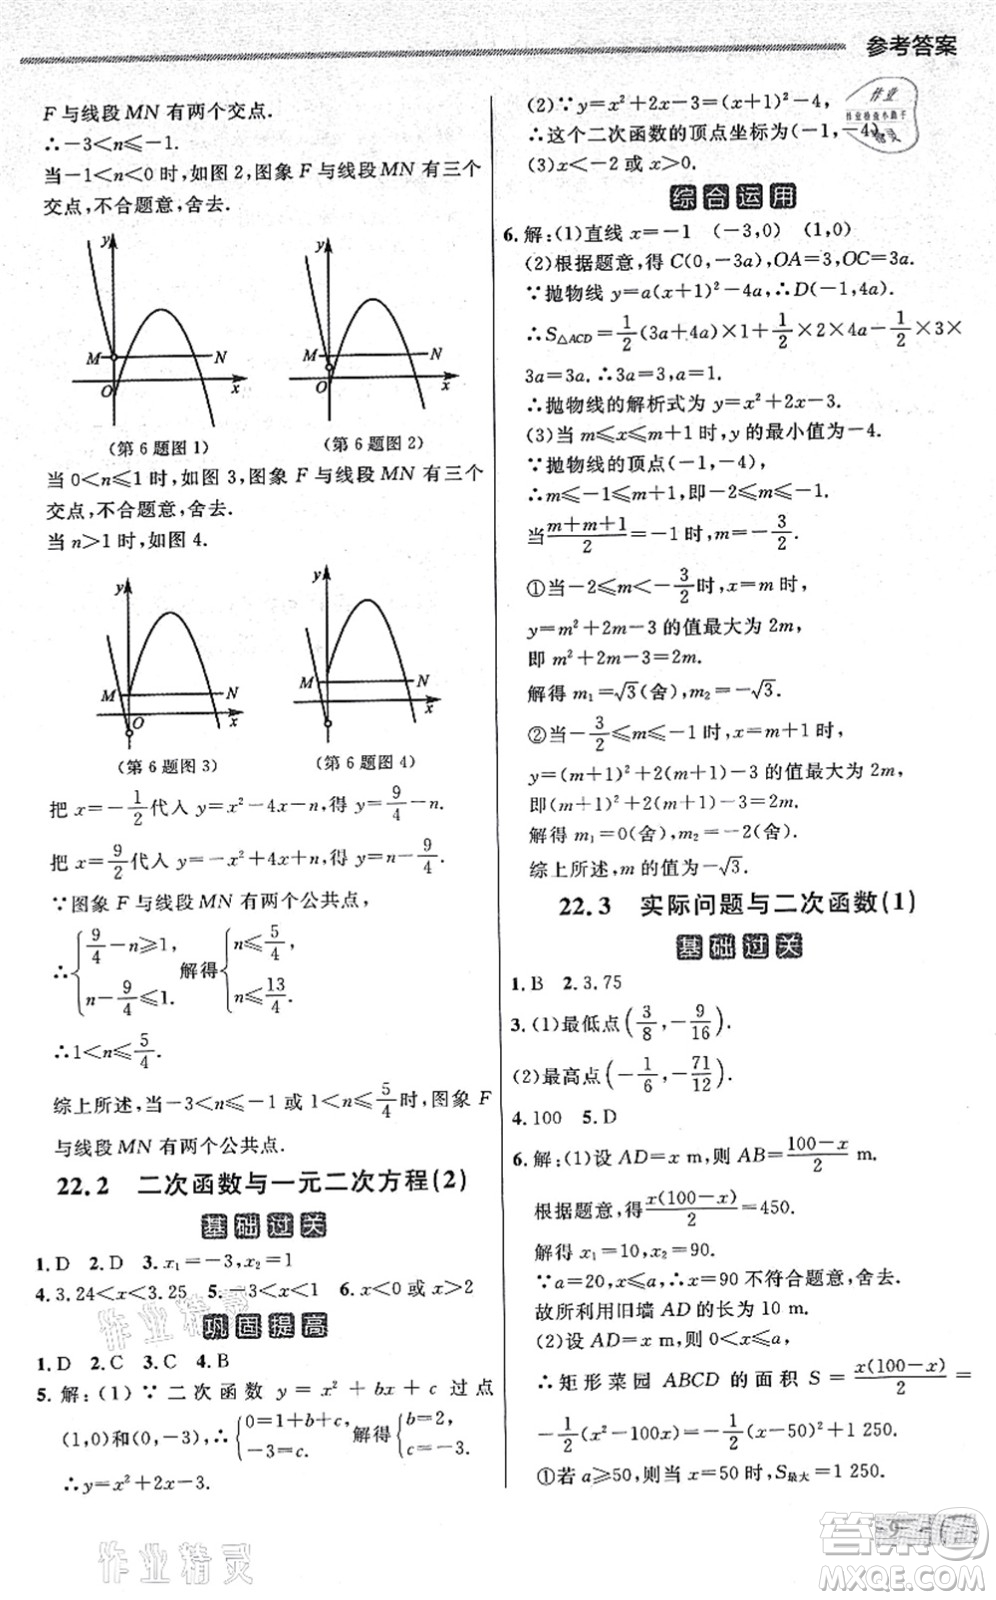 参考答案
F与线段MN有两个交点.
∴-3<n≤-1.
当-1<n<0时,如图2,图象F与线段MN有三个
交点,不合题意,舍去.
y
M
N
O
x
(第6题图1)
y
M
N
O
x
(第6题图2)
当0<n≤1时,如图3,图象F与线段MN有三个
交点,不合题意,舍去.
当n>1时,如图4.
y
M
N
O
x
(第6题图3)
y
M
N
x
(第6题图4)
把x=-1/2代入y=x²-4x-n,得y=9/4-n.
把x=9/2代入y=-x²+4x+n,得y=n-9/4.
∵图象F与线段MN有两个公共点,
∴{9/4-n≥1, n-9/4≤1. 解得{n≤5/4, n≤13/4.
∴1<n≤5/4.
综上所述,当-3<n≤-1或1<n≤5/4时,图象F
与线段MN有两个公共点.
22.2 二次函数与一元二次方程(2)
基础过关
1.D 2.D 3.x₁=-3,x₂=1
4.3.24<x<3.25 5.-3<x<1 6.x<0或x>2
巩固提高
1.D 2.C 3.C 4.B
5.解:(1)∵二次函数y=x²+bx+c过点
(1,0)和(0,-3),∴{0=1+b+c, -3=c. 解得{b=2, c=-3.
∴y=x²+2x-3.
(2)∵y=x²+2x-3=(x+1)²-4,
∴这个二次函数的顶点坐标为(-1,-4).
(3)x<-2或x>0.
综合运用
6.解:(1)直线x=-1 (-3,0) (1,0)
(2)根据题意,得C(0,-3a),OA=3,OC=3a.
∵抛物线y=a(x+1)²-4a,∴D(-1,-4a).
∴S△ACD=1/2(3a+4a)×1+1/2×2×4a-1/2×3×
3a=3a.∴3a=3,a=1.
∴抛物线的解析式为y=x²+2x-3.
(3)当m≤x≤m+1时,y的最小值为-4.
∵抛物线的顶点(-1,-4),
∴m≤-1≤m+1,即-2≤m≤-1.
当(m+m+1)/2=-1时,m=-3/2.
①当-2≤m<-3/2时,x=m时,
y=m²+2m-3的值最大为2m,
即m²+2m-3=2m.
解得m₁=√3(舍),m₂=-√3.
②当-3/2≤m≤-1时,x=m+1时,
y=(m+1)²+2(m+1)-3的值最大为2m,
即(m+1)²+2(m+1)-3=2m.
解得m₁=0(舍),m₂=-2(舍).
综上所述,m的值为-√3.
22.3 实际问题与二次函数(1)
基础过关
1.B 2.3.75
3.(1)最低点(3/8,-9/16).
(2)最高点(-1/6,-71/12).
4.100 5.D
6.解:(1)设AD=x m,则AB=(100-x)/2 m.
根据题意,得x(100-x)/2=450.
解得x₁=10,x₂=90.
∵a=20,x≤a,∴x=90不符合题意,舍去.
故所利用旧墙AD的长为10 m.
(2)设AD=x m,0<x≤a,
∴矩形菜园ABCD的面积S=x(100-x)/2=
-1/2(x²-100x)=-1/2(x-50)²+1 250.
①若a≥50,则当x=50时,S最大=1 250.
9
作业精灵
作业精灵
答案圈
MXQE.COM